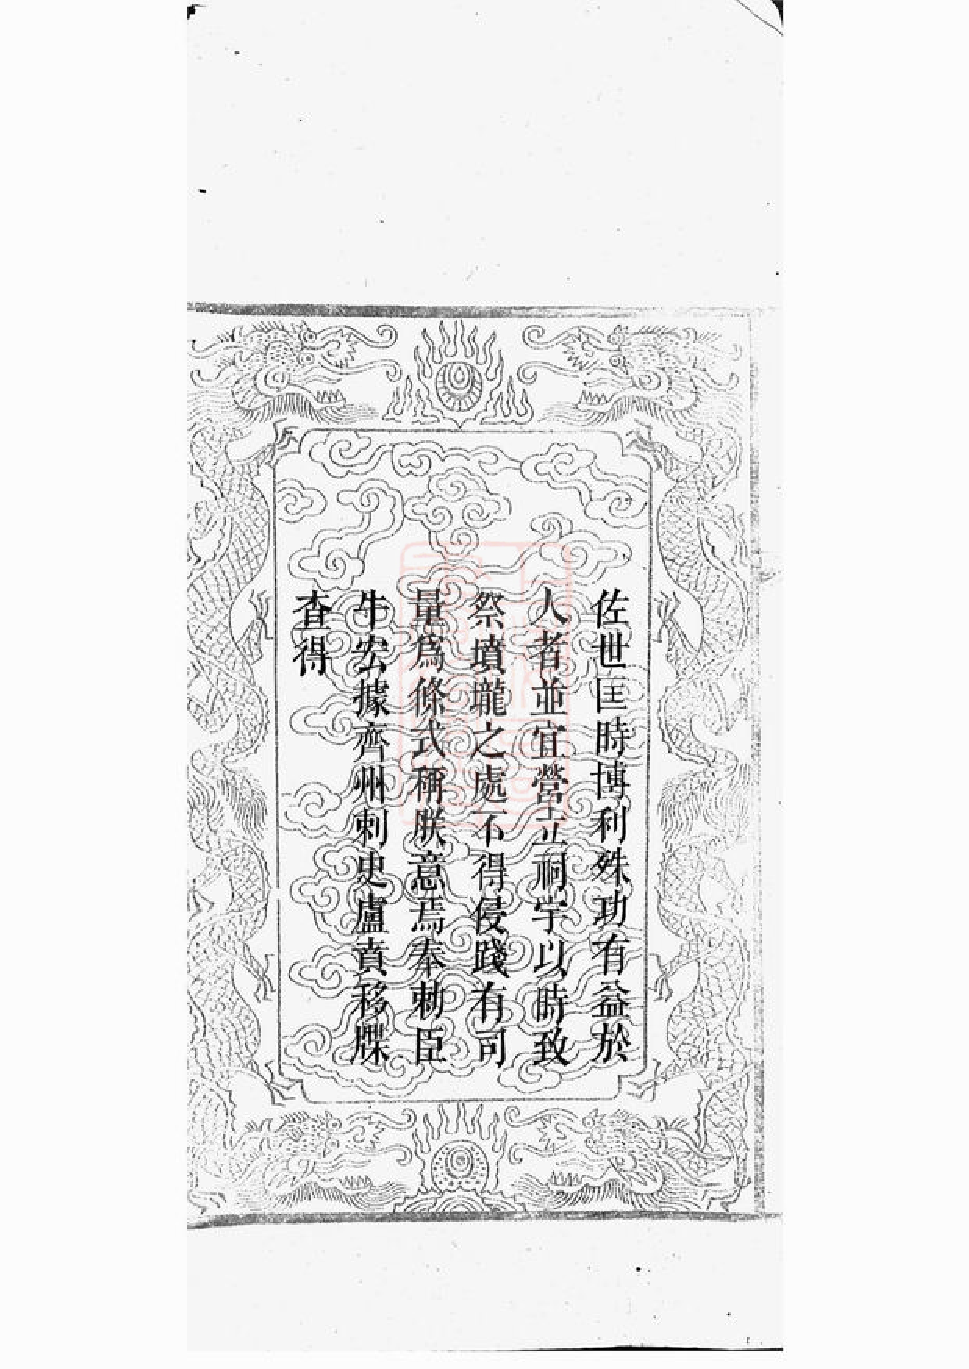 佐世匡時博利殊功有益於
人者並宜營立祠宇以時致
祭墳壠之處不得侵踐有司
量爲條式稱朕意焉奉勅臣
牛宏據齊州刺史盧賁移牒
查得